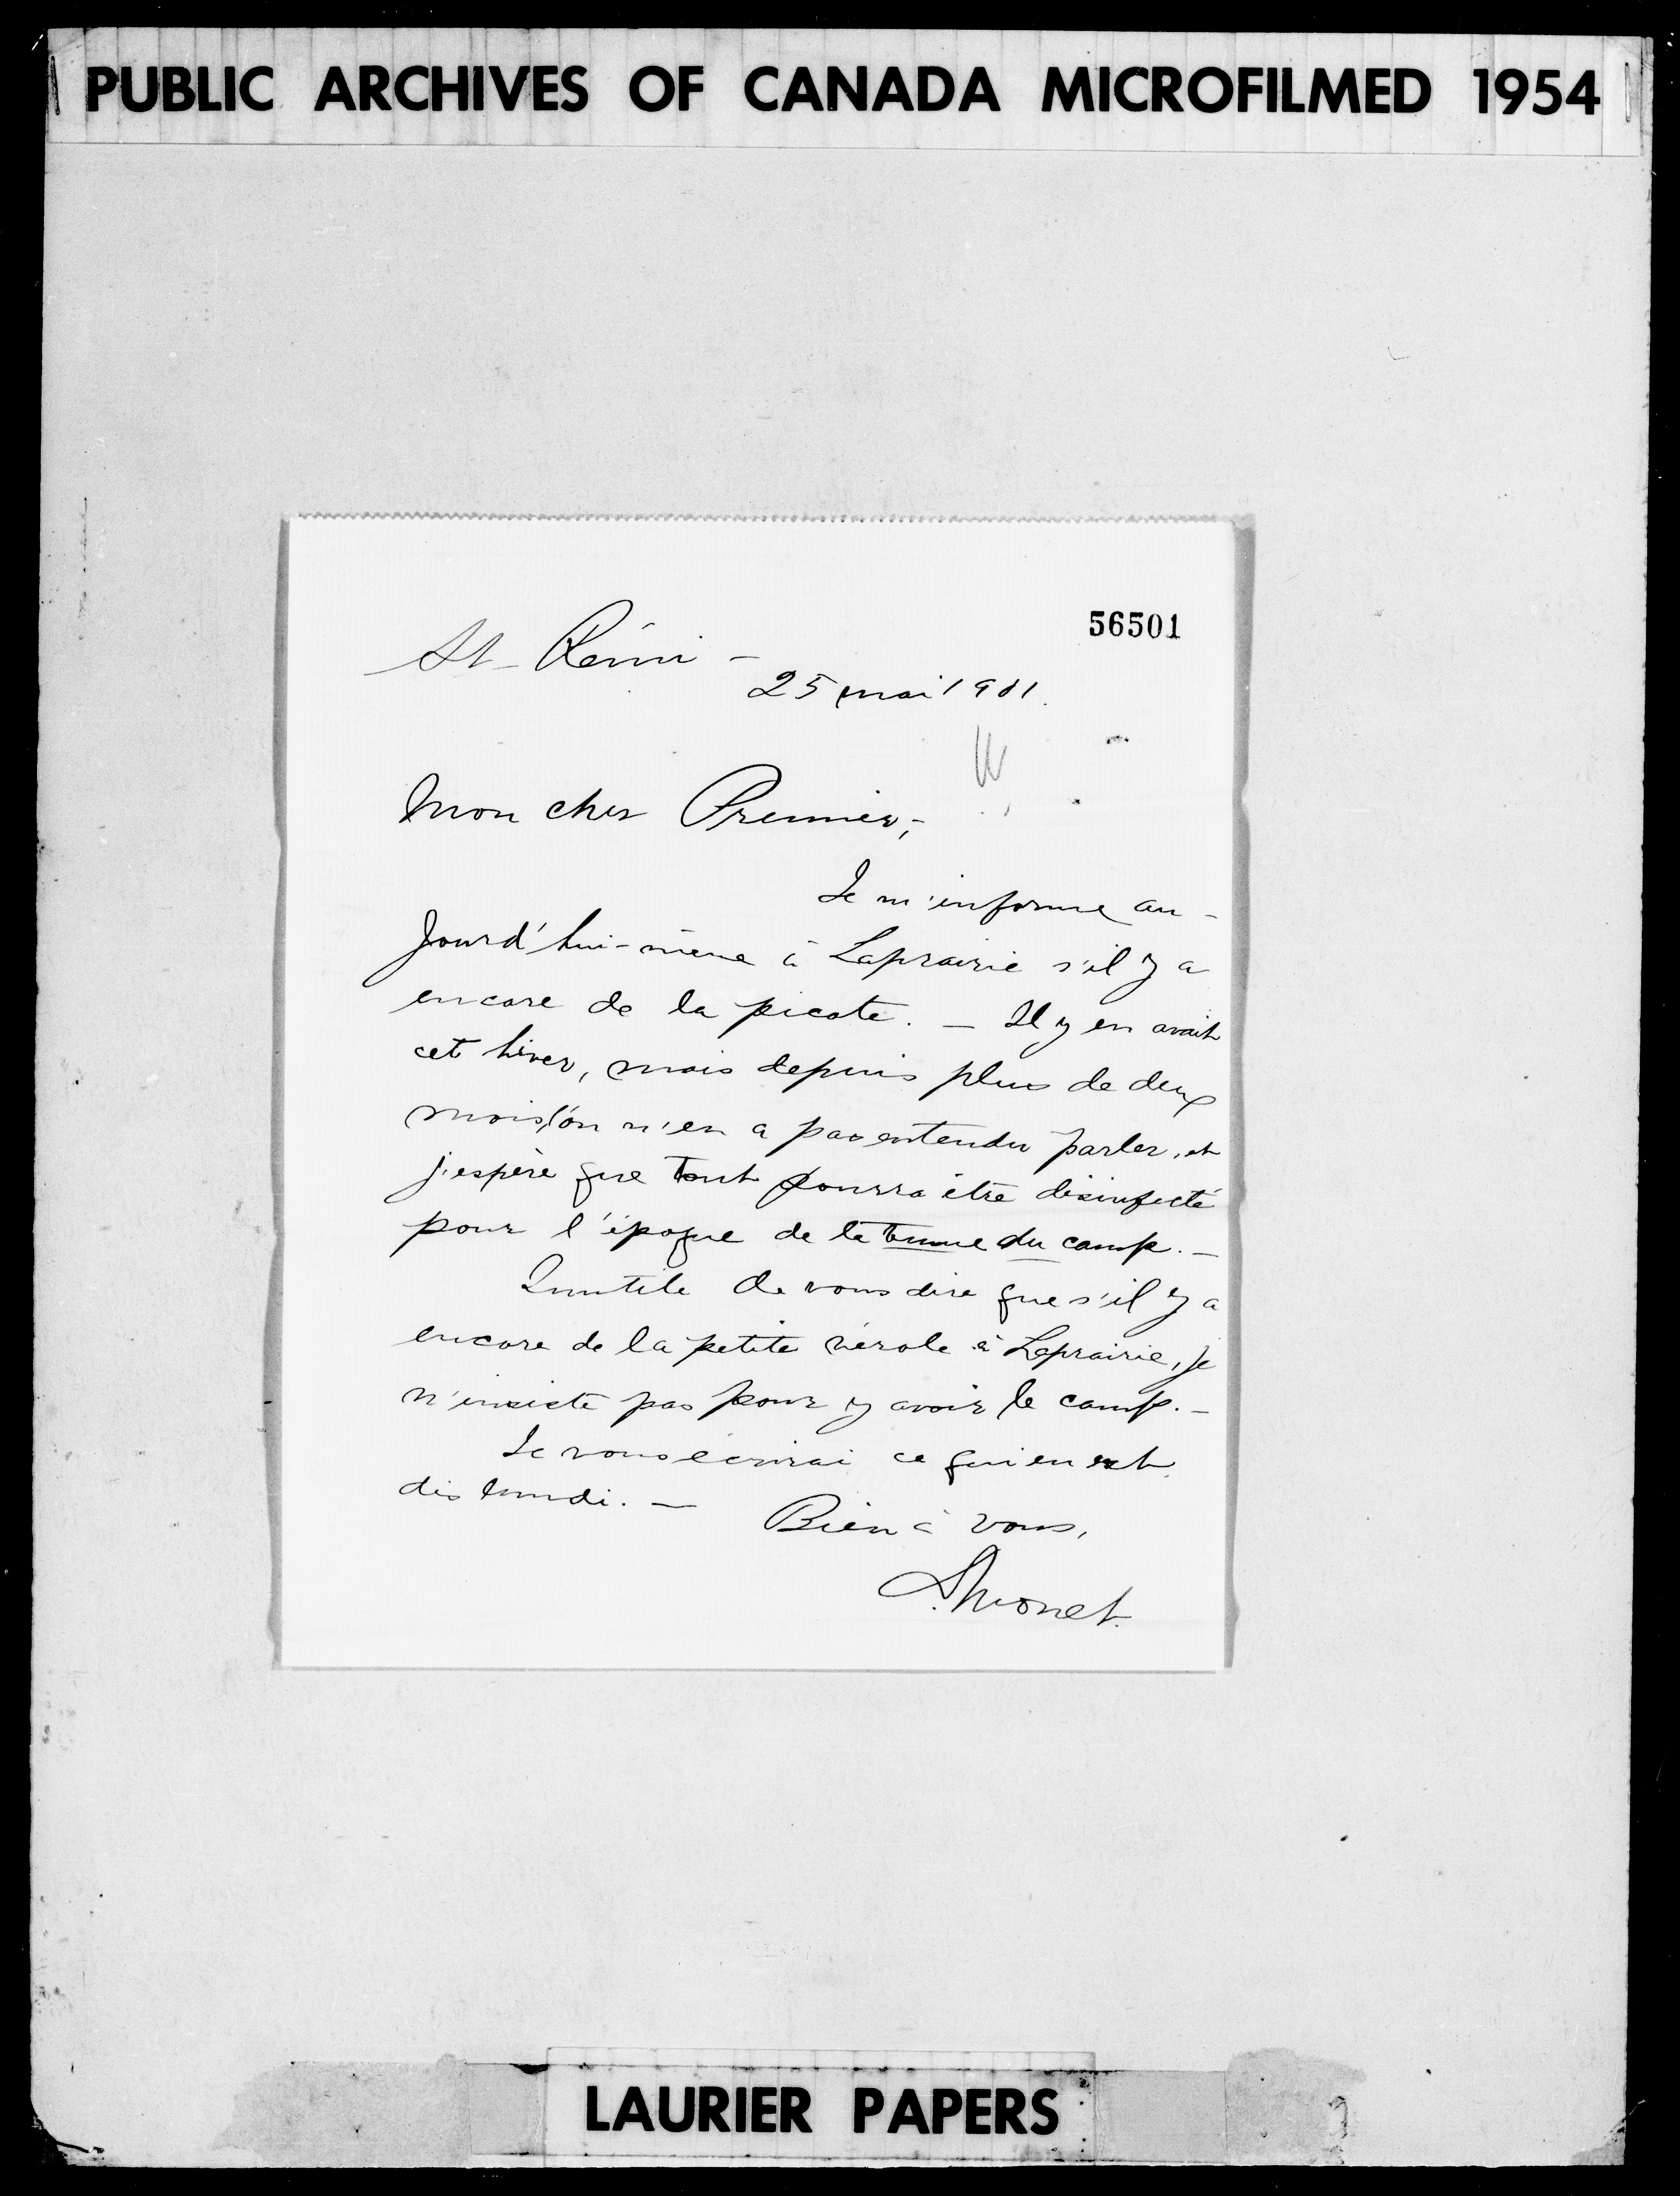 PUBLIC ARCHIVES OF CANADA MICROFILMED 1954
56501
St-Rémi -
25 mai 1901.
Mon cher Premier,-
Je m'informe au-
jourd'hui-même à Laprairie s'il y a
encore de la picote. - Il y en avait
cet hiver, mais depuis plus de deux
mois, on n'en a pas entendu parler, et
j'espère que tout pourra être désinfecté
pour l'époque de la tenue du camp. -
Inutile de vous dire que s'il y a
encore de la petite vérole à Laprairie, je
n'insiste pas pour y avoir le camp. -
Je vous écrirai ce qui en est
dès lundi. -
Bien à vous,
D. Monet.
LAURIER PAPERS